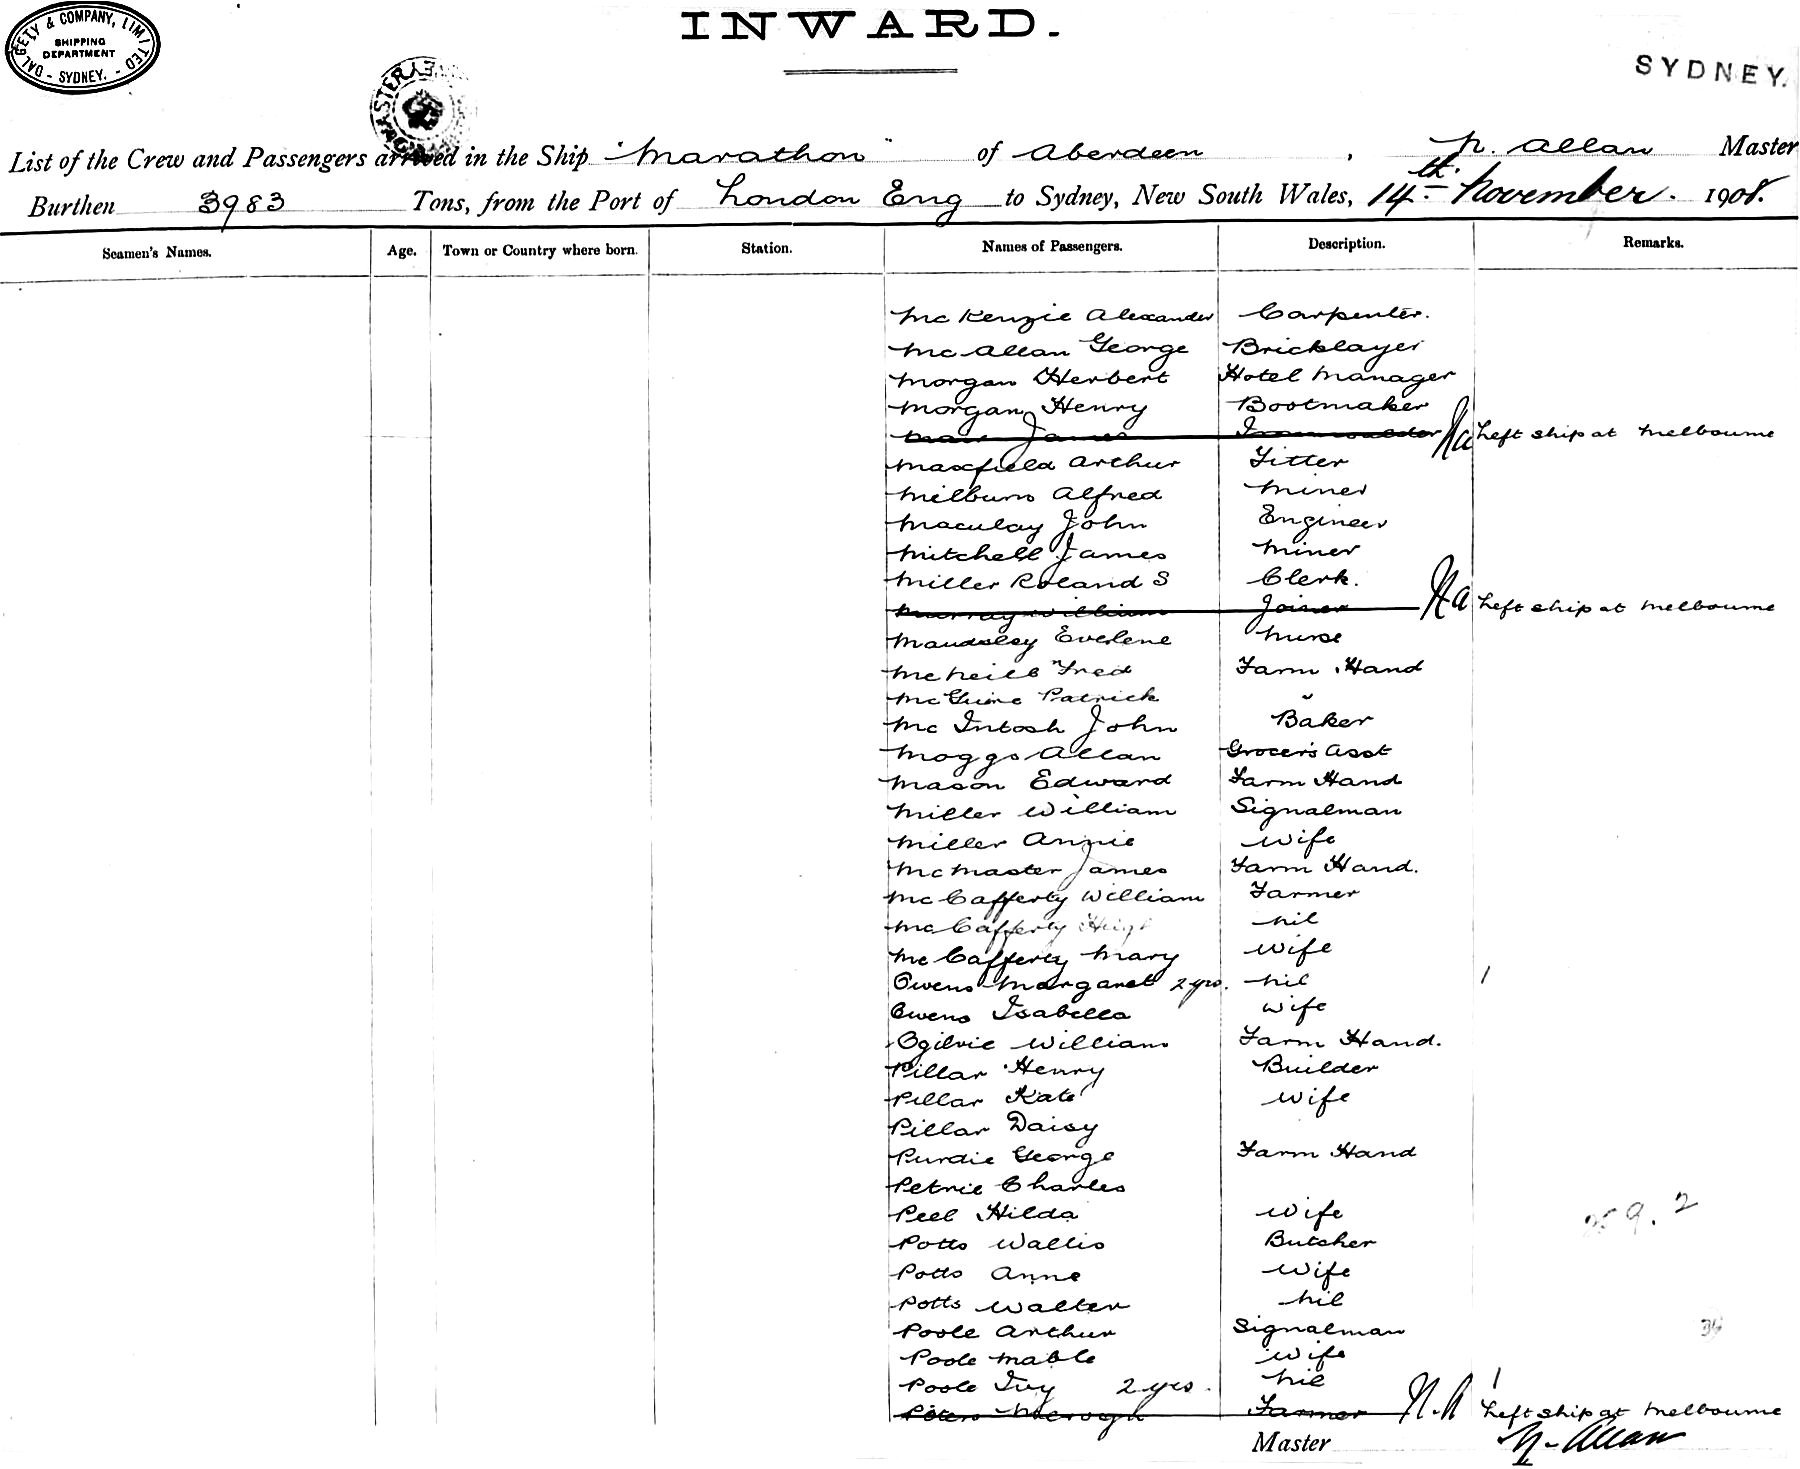 DALGETY & COMPANY, LIMITED
SHIPPING
DEPARTMENT
- SYDNEY. -
INWARD.
SYDNEY.
List of the Crew and Passengers arrived in the Ship "Marathon" of Aberdeen, N. Allan Master
Burthen 3983 Tons, from the Port of London Eng to Sydney, New South Wales, 14th November. 1908.
Seamen's Names. Age. Town or Country where born. Station. Names of Passengers. Description. Remarks.
McKenzie Alexander Carpenter.
McAllan George Bricklayer
Morgan Herbert Hotel Manager
Morgan Henry Bootmaker
James Left ship at Melbourne
Maxfield Arthur Fitter
Milburn Alfred Miner
Maculay John Engineer
Mitchell James Miner
Miller Roland S Clerk.
Murray William Joiner Left ship at Melbourne
Maudsley Everlene Nurse
McNeill Fred Farm Hand
McGuire Patrick "
McIntosh John Baker
Moggs Allan Grocer's Asst
Mason Edward Farm Hand
Miller William Signalman
Miller Annie Wife
McMaster James Farm Hand.
McCafferty William Farmer
McCafferty Hugh Nil
McCafferty Mary Wife
Owens Margaret 2 yrs. Nil 1
Owens Isabella Wife
Ogilvie William Farm Hand.
Pillar Henry Builder
Pillar Kate Wife
Pillar Daisy
Purdie George Farm Hand
Petrie Charles
Peel Hilda Wife
Potts Wallis Butcher
Potts Anne Wife
Potts Walter Nil
Poole Arthur Signalman
Poole Mable Wife
Poole Ivy 2 yrs. Nil 1
Farmer N.A Left ship at Melbourne
Master N. Allan